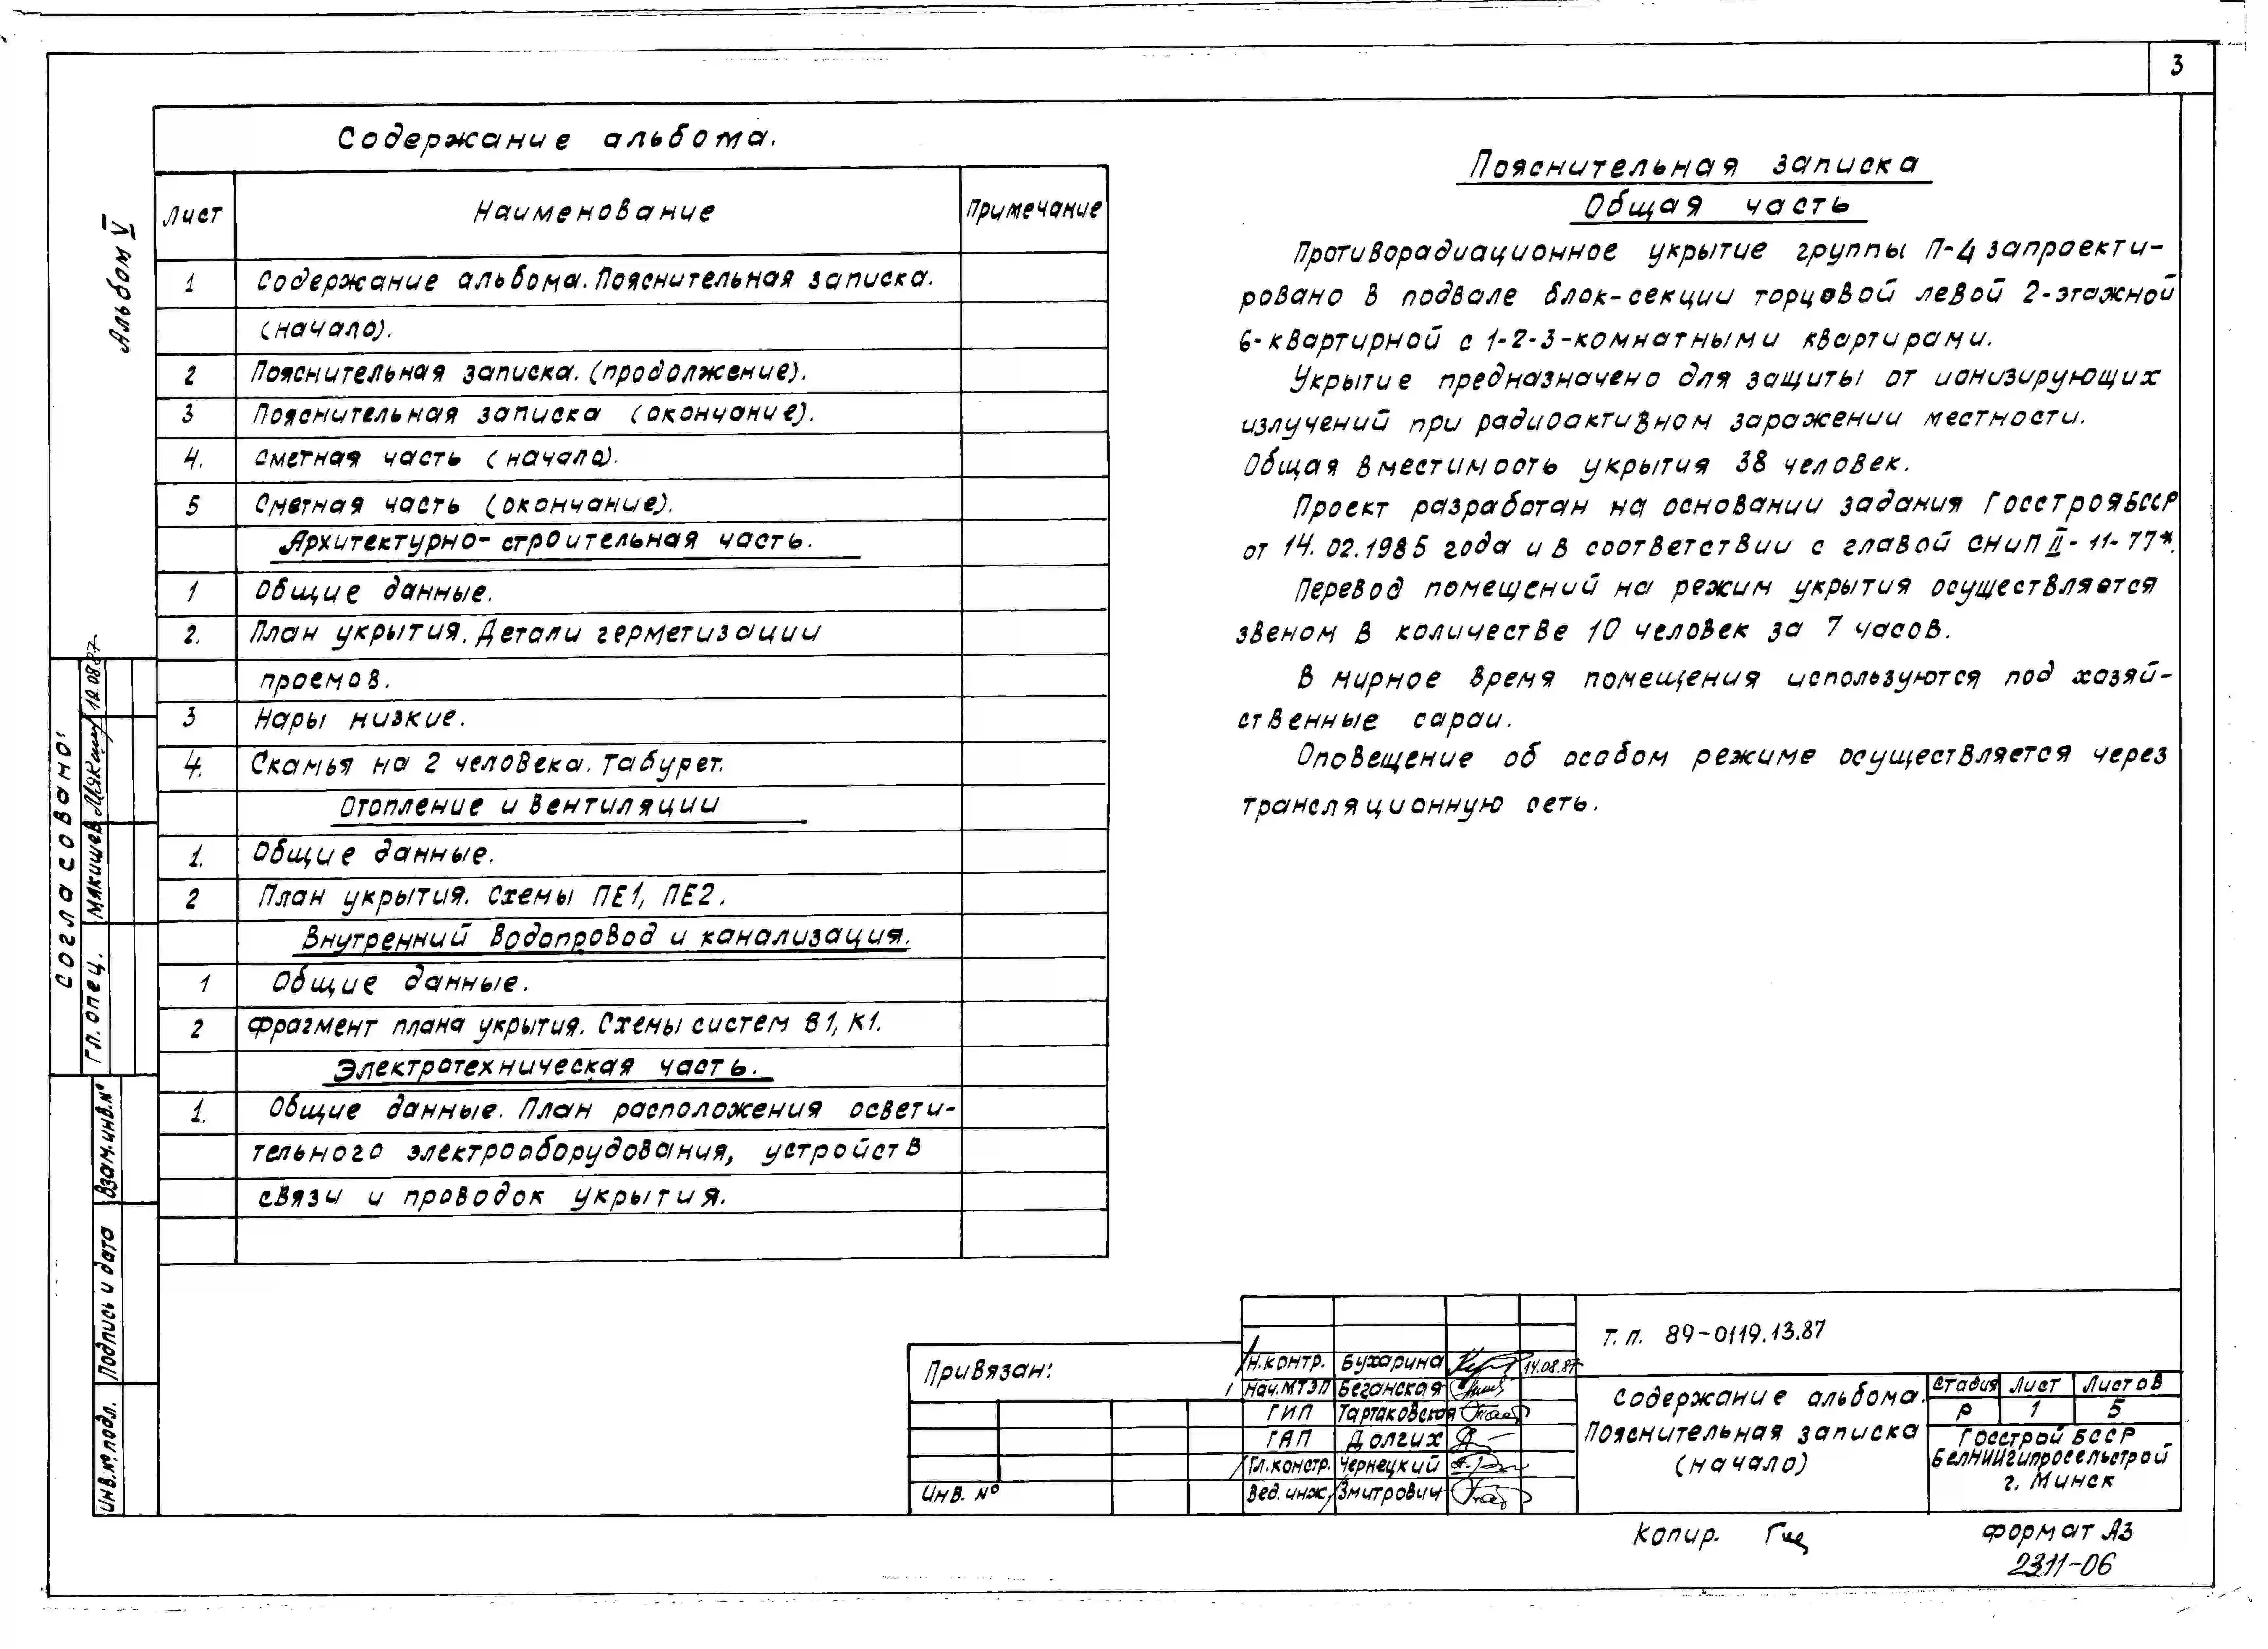 3
Альбом V
Содержание альбома.
Лист Наименование Примечание
1 Содержание альбома. Пояснительная записка.
(начало).
2 Пояснительная записка. (продолжение).
3 Пояснительная записка (окончание).
4. Сметная часть (начало).
5 Сметная часть (окончание).
Архитектурно-строительная часть.
1 Общие данные.
2. План укрытия. Детали герметизации
проемов.
3 Нары низкие.
4. Скамья на 2 человека. Табурет.
Отопление и вентиляции
1. Общие данные.
2 План укрытия. Схемы ПЕ1, ПЕ2.
Внутренний водопровод и канализация.
1 Общие данные.
2 Фрагмент плана укрытия. Схемы систем В1, К1.
Электротехническая часть.
1. Общие данные. План расположения освети-
тельного электрооборудования, устройств
связи и проводок укрытия.
Пояснительная записка
Общая часть
Противорадиационное укрытие группы П-4 запроекти-
ровано в подвале блок-секции торцовой левой 2-этажной
6-квартирной с 1-2-3-комнатными квартирами.
Укрытие предназначено для защиты от ионизирующих
излучений при радиоактивном заражении местности.
Общая вместимость укрытия 38 человек.
Проект разработан на основании задания Госстроя БССР
от 14.02.1985 года и в соответствии с главой СНиП II-11-77*.
Перевод помещений на режим укрытия осуществляется
звеном в количестве 10 человек за 7 часов.
В мирное время помещения используются под хозяй-
ственные сараи.
Оповещение об особом режиме осуществляется через
трансляционную сеть.
Согласовано:
Гл. спец. Мякишев 12.08.87
Взам.инв.№
Подпись и дата
Инв.№ подл.
Привязан:
Инв. №
Н.контр. Бухарина 14.08.87
Нач.МТЭП Беганская
ГИП Тартаковская
ГАП Долгих
Гл.констр. Чернецкий
Вед. инж. Змитрович
Т. п. 89-0119.13.87
Содержание альбома.
Пояснительная записка
(начало)
Стадия Лист Листов
Р 1 5
Госстрой БССР
БелНИИгипросельстрой
г. Минск
Копир.
Формат А3
2311-06